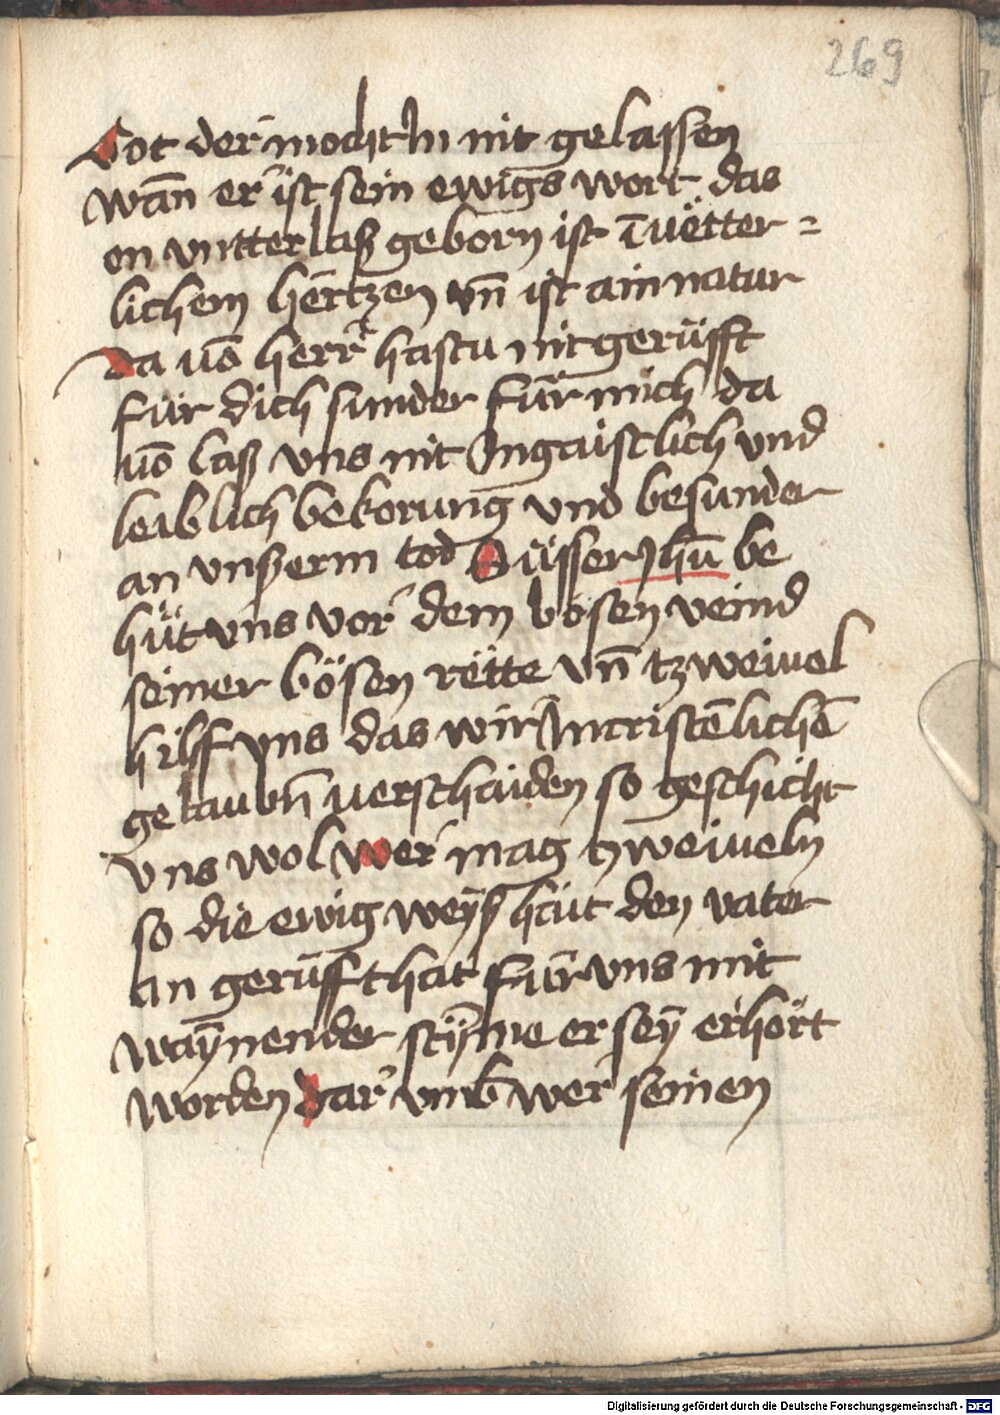 269
Got der mocht In nit gelassen
wañ er ist sein ewigs wort das
on vntterlaß geborn ist ī vëtter =
lichem hertzen vn̄ ist ain natur
Da vō herr hastu nit gerüfft
für dich sunder für mich da
vō laß vns nit In gaistlich vnd
leiblich bekorung vnd besunder
an vnßerm tod Süsser Jhū be
hüt vns vor dem bösen veind
seiner bösen rëtte vn̄ tzweiuel
hilf vns das wir In cristēlichē
gelaubn̄ verschaiden so geschicht
vns wol wer mag tzweiueln
so die ewig weÿßhait den vater
an gerüfft hat für vns mit
waÿnender stÿm̄e er seÿ erhört
worden Dar vmb wer seinen
Digitalisierung gefördert durch die Deutsche Forschungsgemeinschaft - DFG